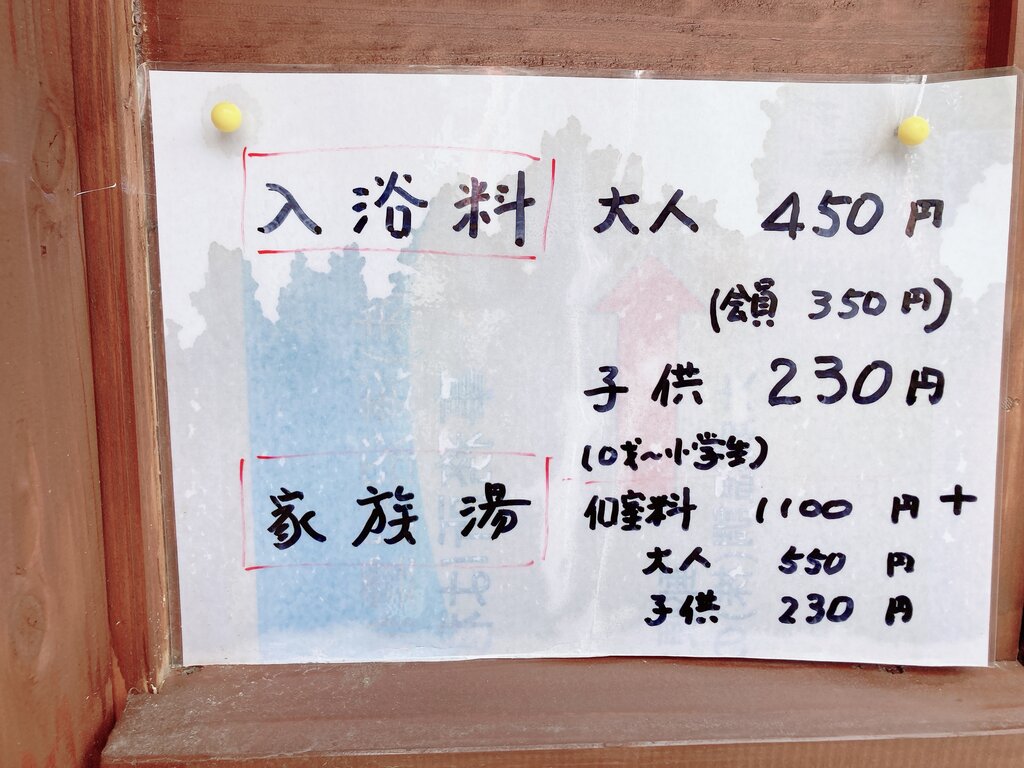 入浴料 大人 450円
(会員 350円)
子供 230円
(0才〜小学生)
家族湯 個室料 1100円+
大人 550円
子供 230円